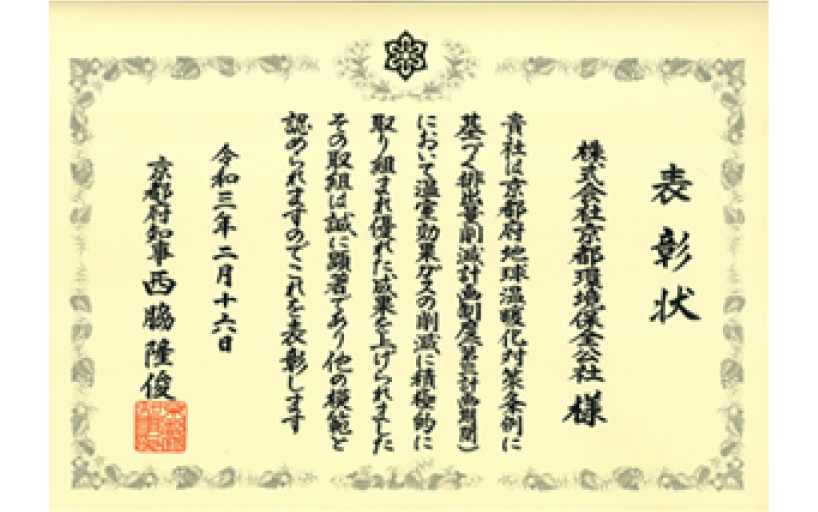 表彰状
株式会社京都環境保全公社 様
貴社は京都府地球温暖化対策条例に
基づく排出量削減計画制度(第三計画期間)
において温室効果ガスの削減に積極的に
取り組まれ優れた成果を上げられました
その取組は誠に顕著であり他の模範と
認められますのでこれを表彰します
令和三年二月十六日
京都府知事 西脇隆俊